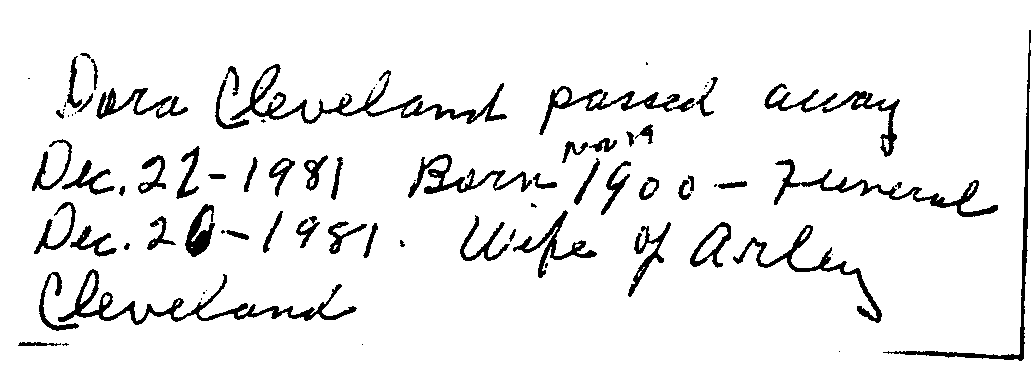 Dora Cleveland passed away
Nov 19
Dec. 22-1981 Born 1900 - Funeral
Dec. 26-1981. Wife of Arley
Cleveland